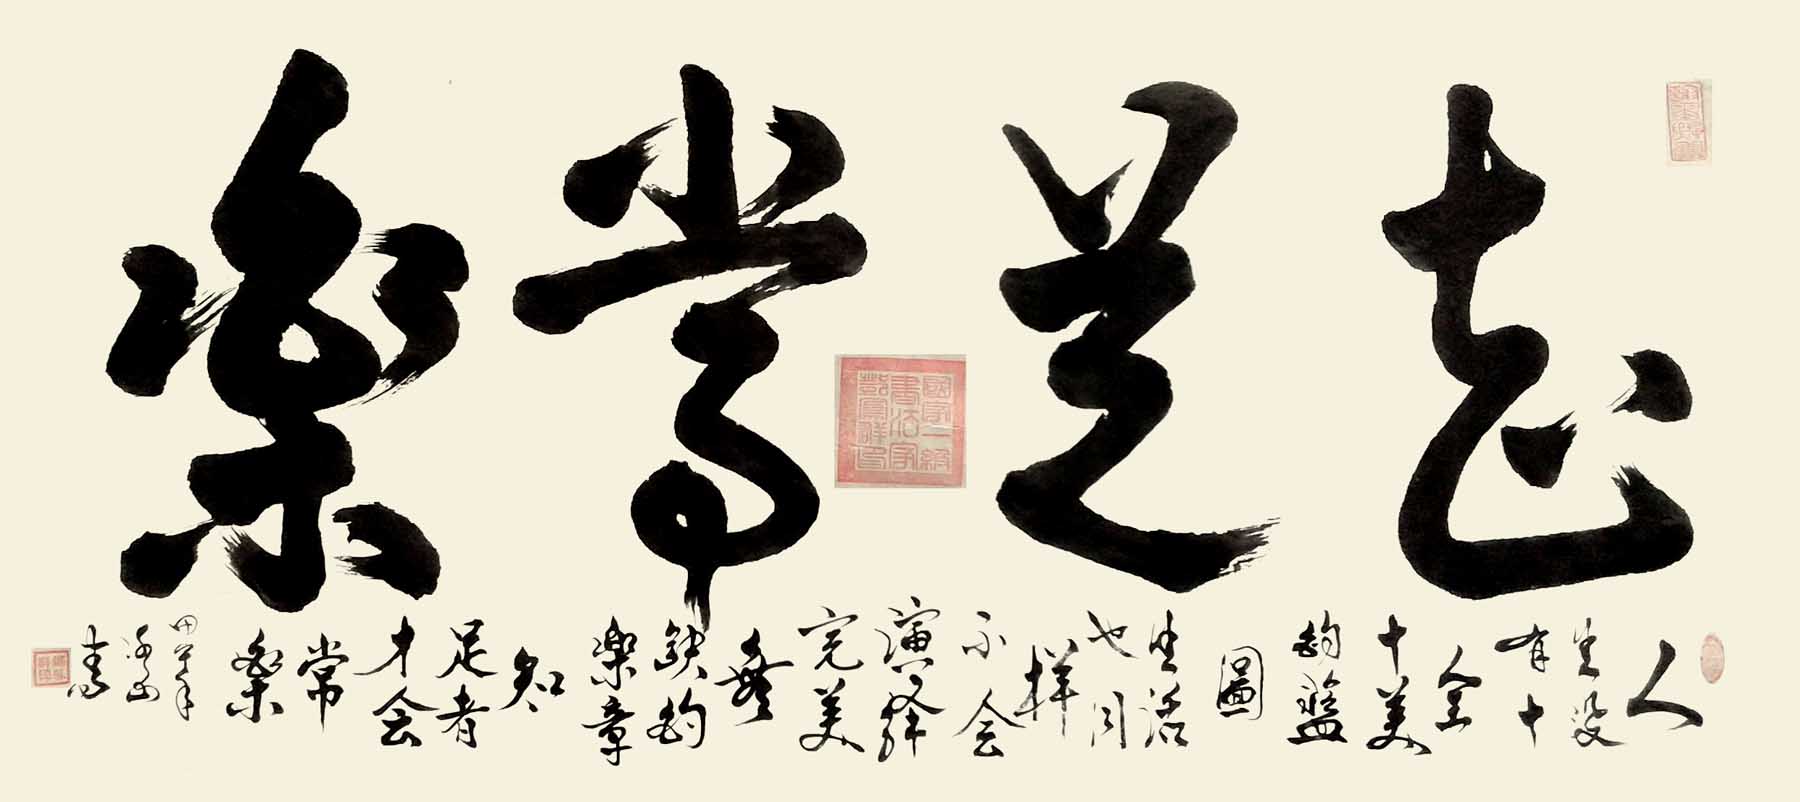 知足常樂
人
生没
有十
全
十美
的藍
圖
生活
也同
样
不会
演绎
完美
無
缺的
樂章
知
足者
才会
常
樂
甲午年
書
國家一級
書法家